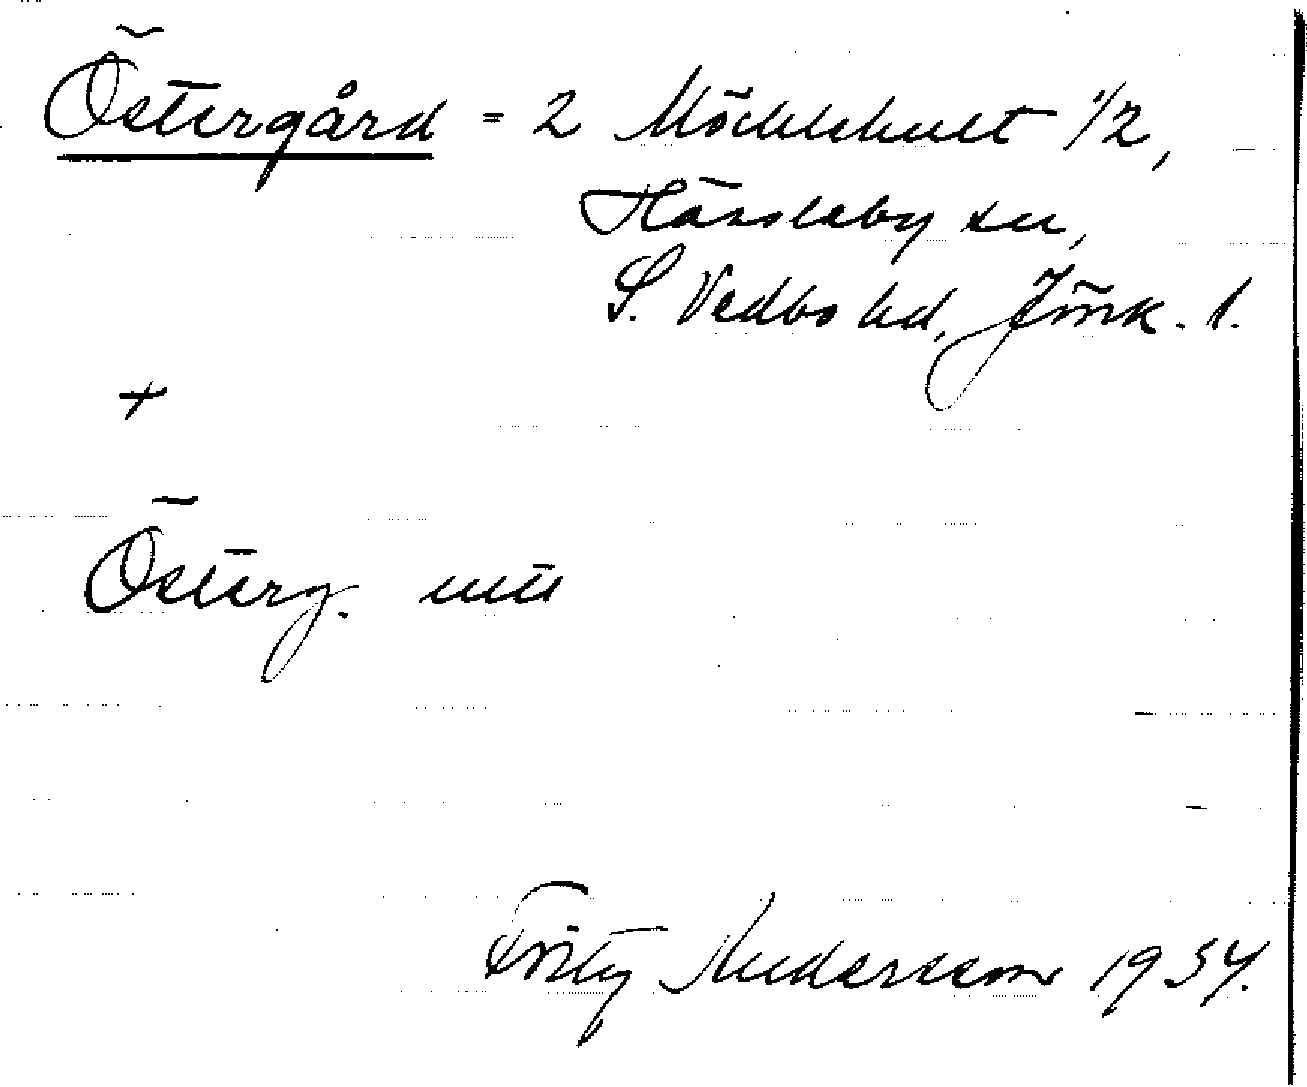 Östergård = 2 Möcklehult 1/2,
Hässleby sn,
S. Vedbo hd, Jönk. l.
+
Österg.
Fritz Andersson 1934.